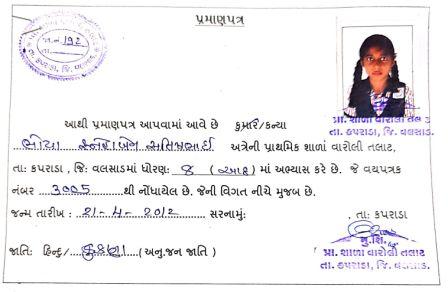 પ્રમાણપત્ર
જા.નં. 192
તા.
તા. કપરાડા, જિ. વલસાડ
પ્રા. શાળા વારોલી તલાટ
તા. કપરાડા, જિ. વલસાડ.
આથી પ્રમાણપત્ર આપવામાં આવે છે કુમાર/કન્યા
ભોયા સતિષભાઈ અત્રેની પ્રાથમિક શાળાં વારોલી તલાટ,
તા: કપરાડા, જિ: વલસાડમાં ધોરણ: 8 (આઠ) માં અભ્યાસ કરે છે. જે વયપત્રક
નંબર 3005 થી નોંધાયેલ છે. જેની વિગત નીચે મુજબ છે.
જન્મ તારીખ : 21-4-2012 સરનામું: તા: કપરાડા
જાતિ: હિન્દુ/ કુકણા (અનુ.જન જાતિ)
મુ.શિ.
પ્રા. શાળા વારોલી તલાટ
તા. કપરાડા, જિ. વલસાડ.